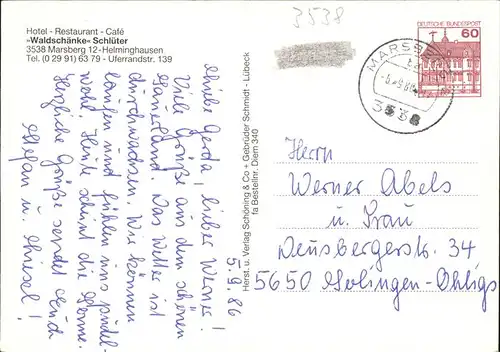 3538
Hotel - Restaurant - Café
»Waldschänke« Schlüter
3538 Marsberg 12-Helminghausen
Tel. (0 29 91) 63 79 - Uferrandstr. 139
DEUTSCHE BUNDESPOST
60
MARSBERG
3538
5.9.86
Liebe Gerda, lieber Werner!
Viele Grüße aus dem schönen
Sauerland. Das Wetter ist
durchwachsen. Wir können
laufen und fühlen uns pudel-
wohl. Heute scheint die Sonne.
Herzliche Grüße sendet Euch
Stefan u. Christel!
Herst. u. Verlag Schöning & Co + Gebrüder Schmidt - Lübeck
fa Bestellnr. Diem 340
Herrn
Werner Abels
u. Frau
Deusbergerstr. 34
5650 Solingen-Ohligs